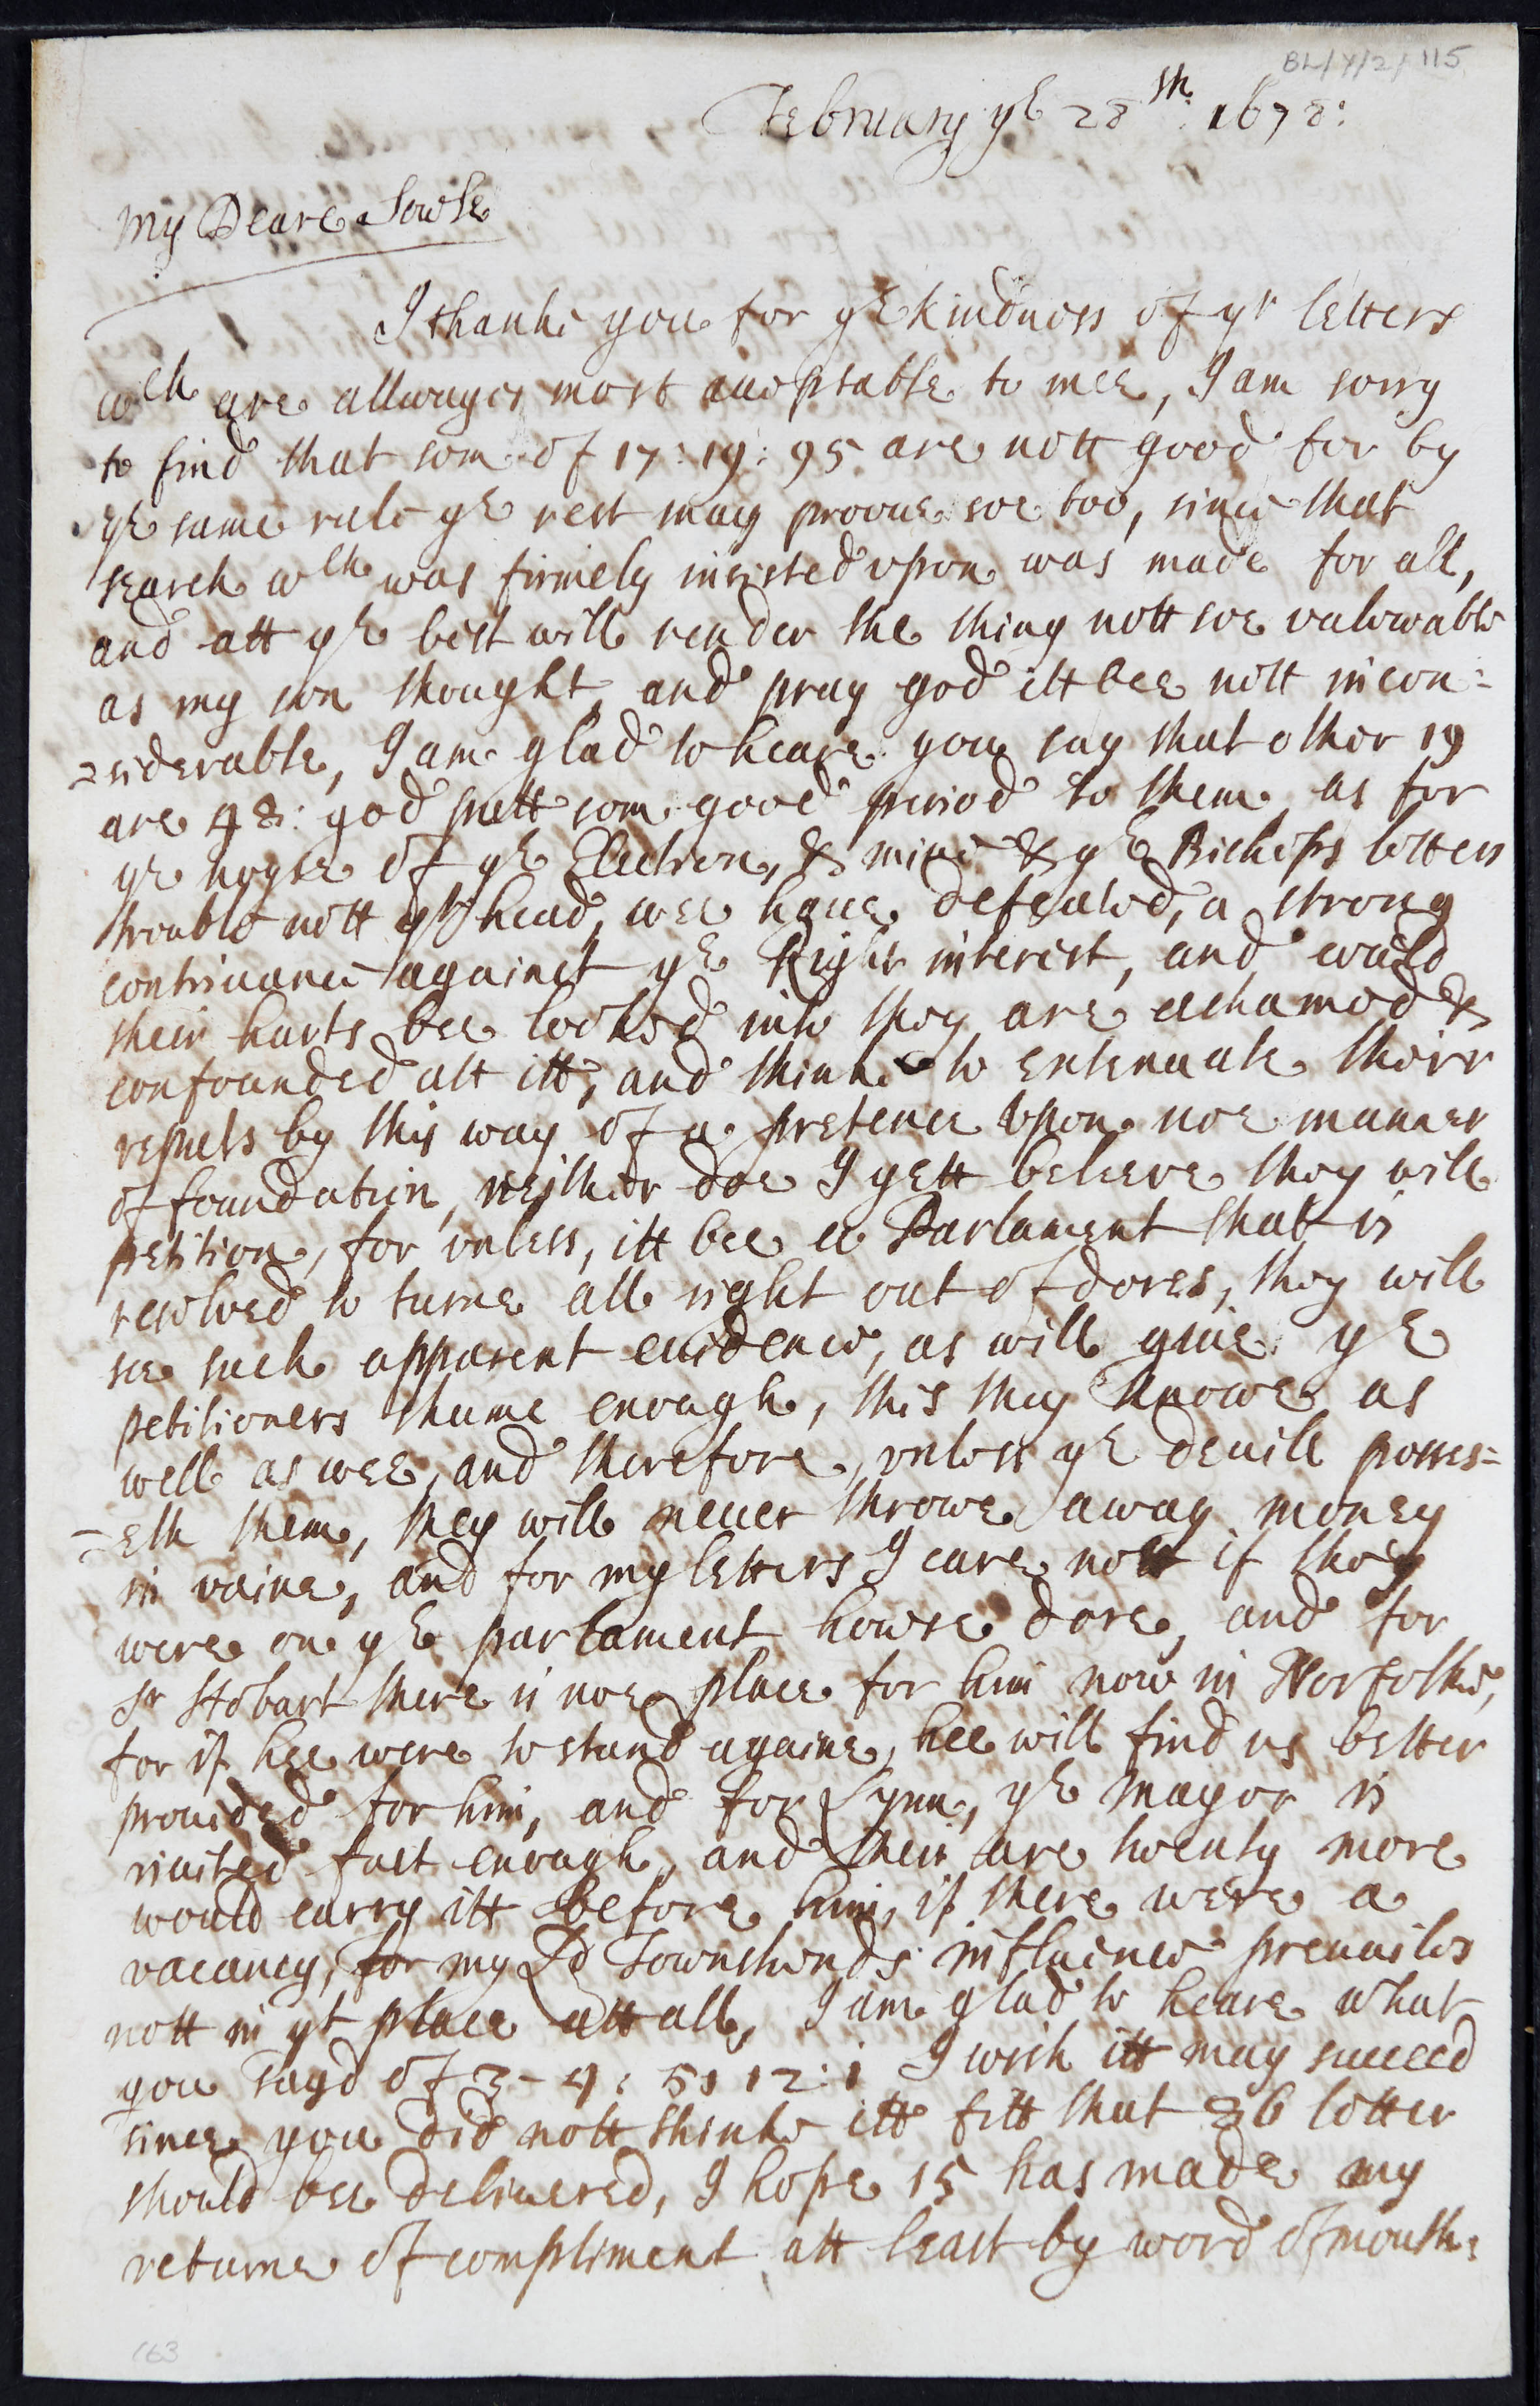 BL/Y/2/115
February ye 28th: 1678:
My Deare Sowle
I thanke you for ye kindness of yr letters
wch are allwayes most acceptable to mee, I am sorry
to find that som of 17: 19: 95 are nott good for by
ye same rule ye rest may proove soe too, since that
search wch was firmely insisted upon was made for all,
and att ye best will render the thing nott soe valuwable
as my son thought, and pray god itt bee nott incon=
=siderable, I am glad to heare you say that other 19
are 48: god putt som good period to them, as for
ye noyse of ye Election, & mine & ye Bishops letters
trouble nott yr head, wee have defeated, a strong
contrivance against ye Kings interest, and could
their harts bee looked into they are ashamed &
confounded att itt, and thinke to extenuate theire
repuls by this way of a pretence upon noe manner
of foundation, neither doe I yett beleeve they will
petition, for unless, itt bee a Parlament that is
resolved to turne all right out of dores, they will
see such apparent evidence, as will give ye
petitioners shame enough, this they knowe as
well as wee, and therefore, unless ye devill posses=
=eth them, they will never throwe away money
in vaine, and for my letters I care nott if they
were on ye parlament howse dore, and for
Sr Hobart there is noe place for him now in Norfolke,
for if hee were to stand againe, hee will find us better
provided for him, and for Lynn, ye mayor is
fast enough, and their are twenty more
would carry itt before him, if there were a
vacancy, for my Ld Townshends influence prevailes
nott in yt place att all, I am glad to heare what
you sayd of 3- 4: 51 12: 1 I wish itt may succeed
since you did nott thinke itt fitt that 36 letter
should bee delivered, I hope 15 has made my
returne of compliment att least by word of mouth:
163